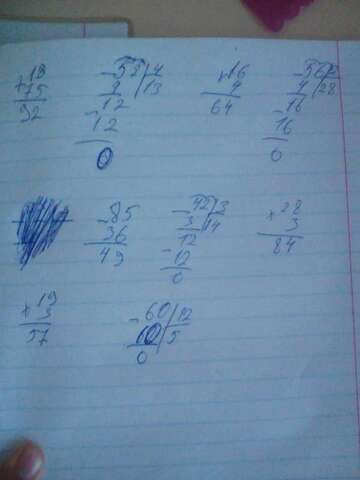 +18
75
92
-52|4
4|13
-12
12
0
×16
4
64
-56|2
4|28
-16
16
0
-85
36
49
-42|3
3|14
12
-12
0
×28
3
84
×19
3
57
-60|12
|5
0